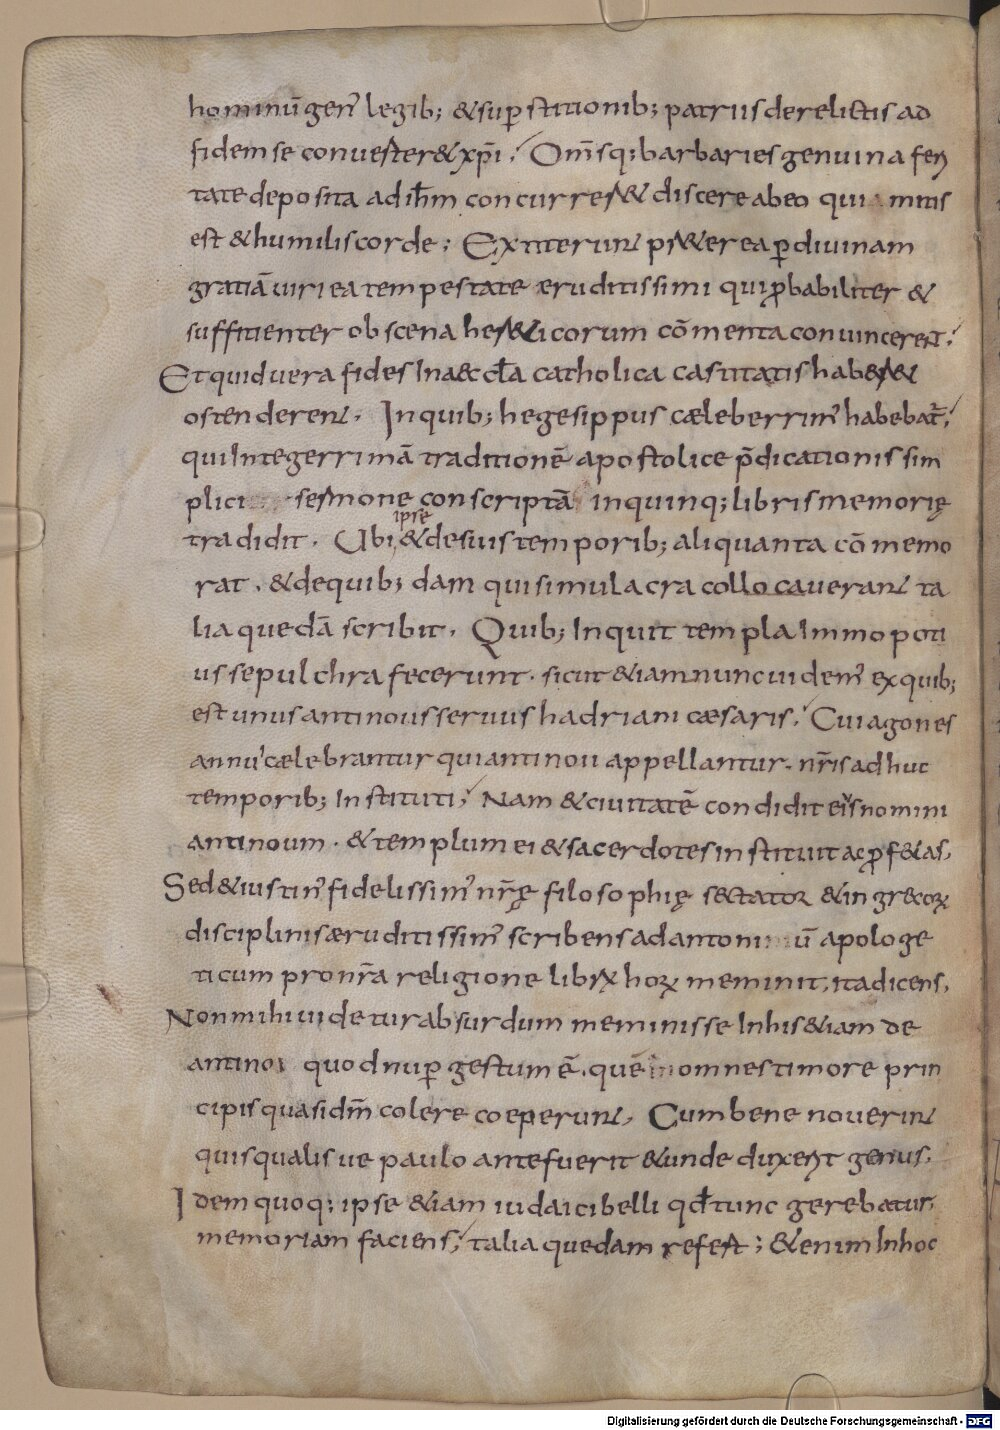 hominū gen̄ legib; & sup̱stitionib; patriis derelictis ad
fidem se conuerter& xp̄i; Om̄sq; barbaries genuina feri
tate deposita ad ih̄m concurrer& discere ab eo quia mitis
est & humilis corde; Extiterunt pr&erea p̱ diuinam
gratiā uiri ea tempestate eruditissimi qui ꝓbabiliter &
suffitienter obscena her&icorum cōmenta conuincerent;
Et quid uera fides in aeccl̄a catholica castitatis haber&
ostenderent. In quib; hegesippus cæleberrim' habebat̄;
qui integerrimā traditionē apostolice p̄dicationis sim
plici sermone conscriptā in quinq; libris memorię
tradidit. Ubi ipse & de suis temporib; aliquanta cōmemo
rat. & de quib;dam qui simulacra collocauerant ta
lia quedā scribit. Quib; inquit templa immo poti
us sepulchra fecerunt. sicut &iam nunc uidem' ex quib;
est unus antinous seruus hadriani cæsaris; Cui agones
annui cælebrantur qui antinou appellantur. nr̄is adhuc
temporib; instituti; Nam & ciuitatē condidit ei's nomini
antinoum. & templum ei & sacerdotes instituit ac ꝓf&as,
Sed & iustin' fidelissim' nr̄ę filosophię sectator & in grecoꝝ
disciplinis æruditissim' scribens ad antoninū apologe
ticum pro nr̄a religione libꝝ hoꝝ meminit, ita dicens,
Non mihi uidetur absurdum meminisse in his &iam de
antinoi quod nup̱ gestum ē, quē omnes timore prin
cipis quasi dm̄ colere coeperunt, Cum bene nouerint
quis qualisue paulo ante fuerit & unde duxerit genus,
Idem quoq; ipse &iam iudaici belli qđ tunc gerebatur,
memoriam faciens; talia quedam refert; &enim in hoc
Digitalisierung gefördert durch die Deutsche Forschungsgemeinschaft - DFG